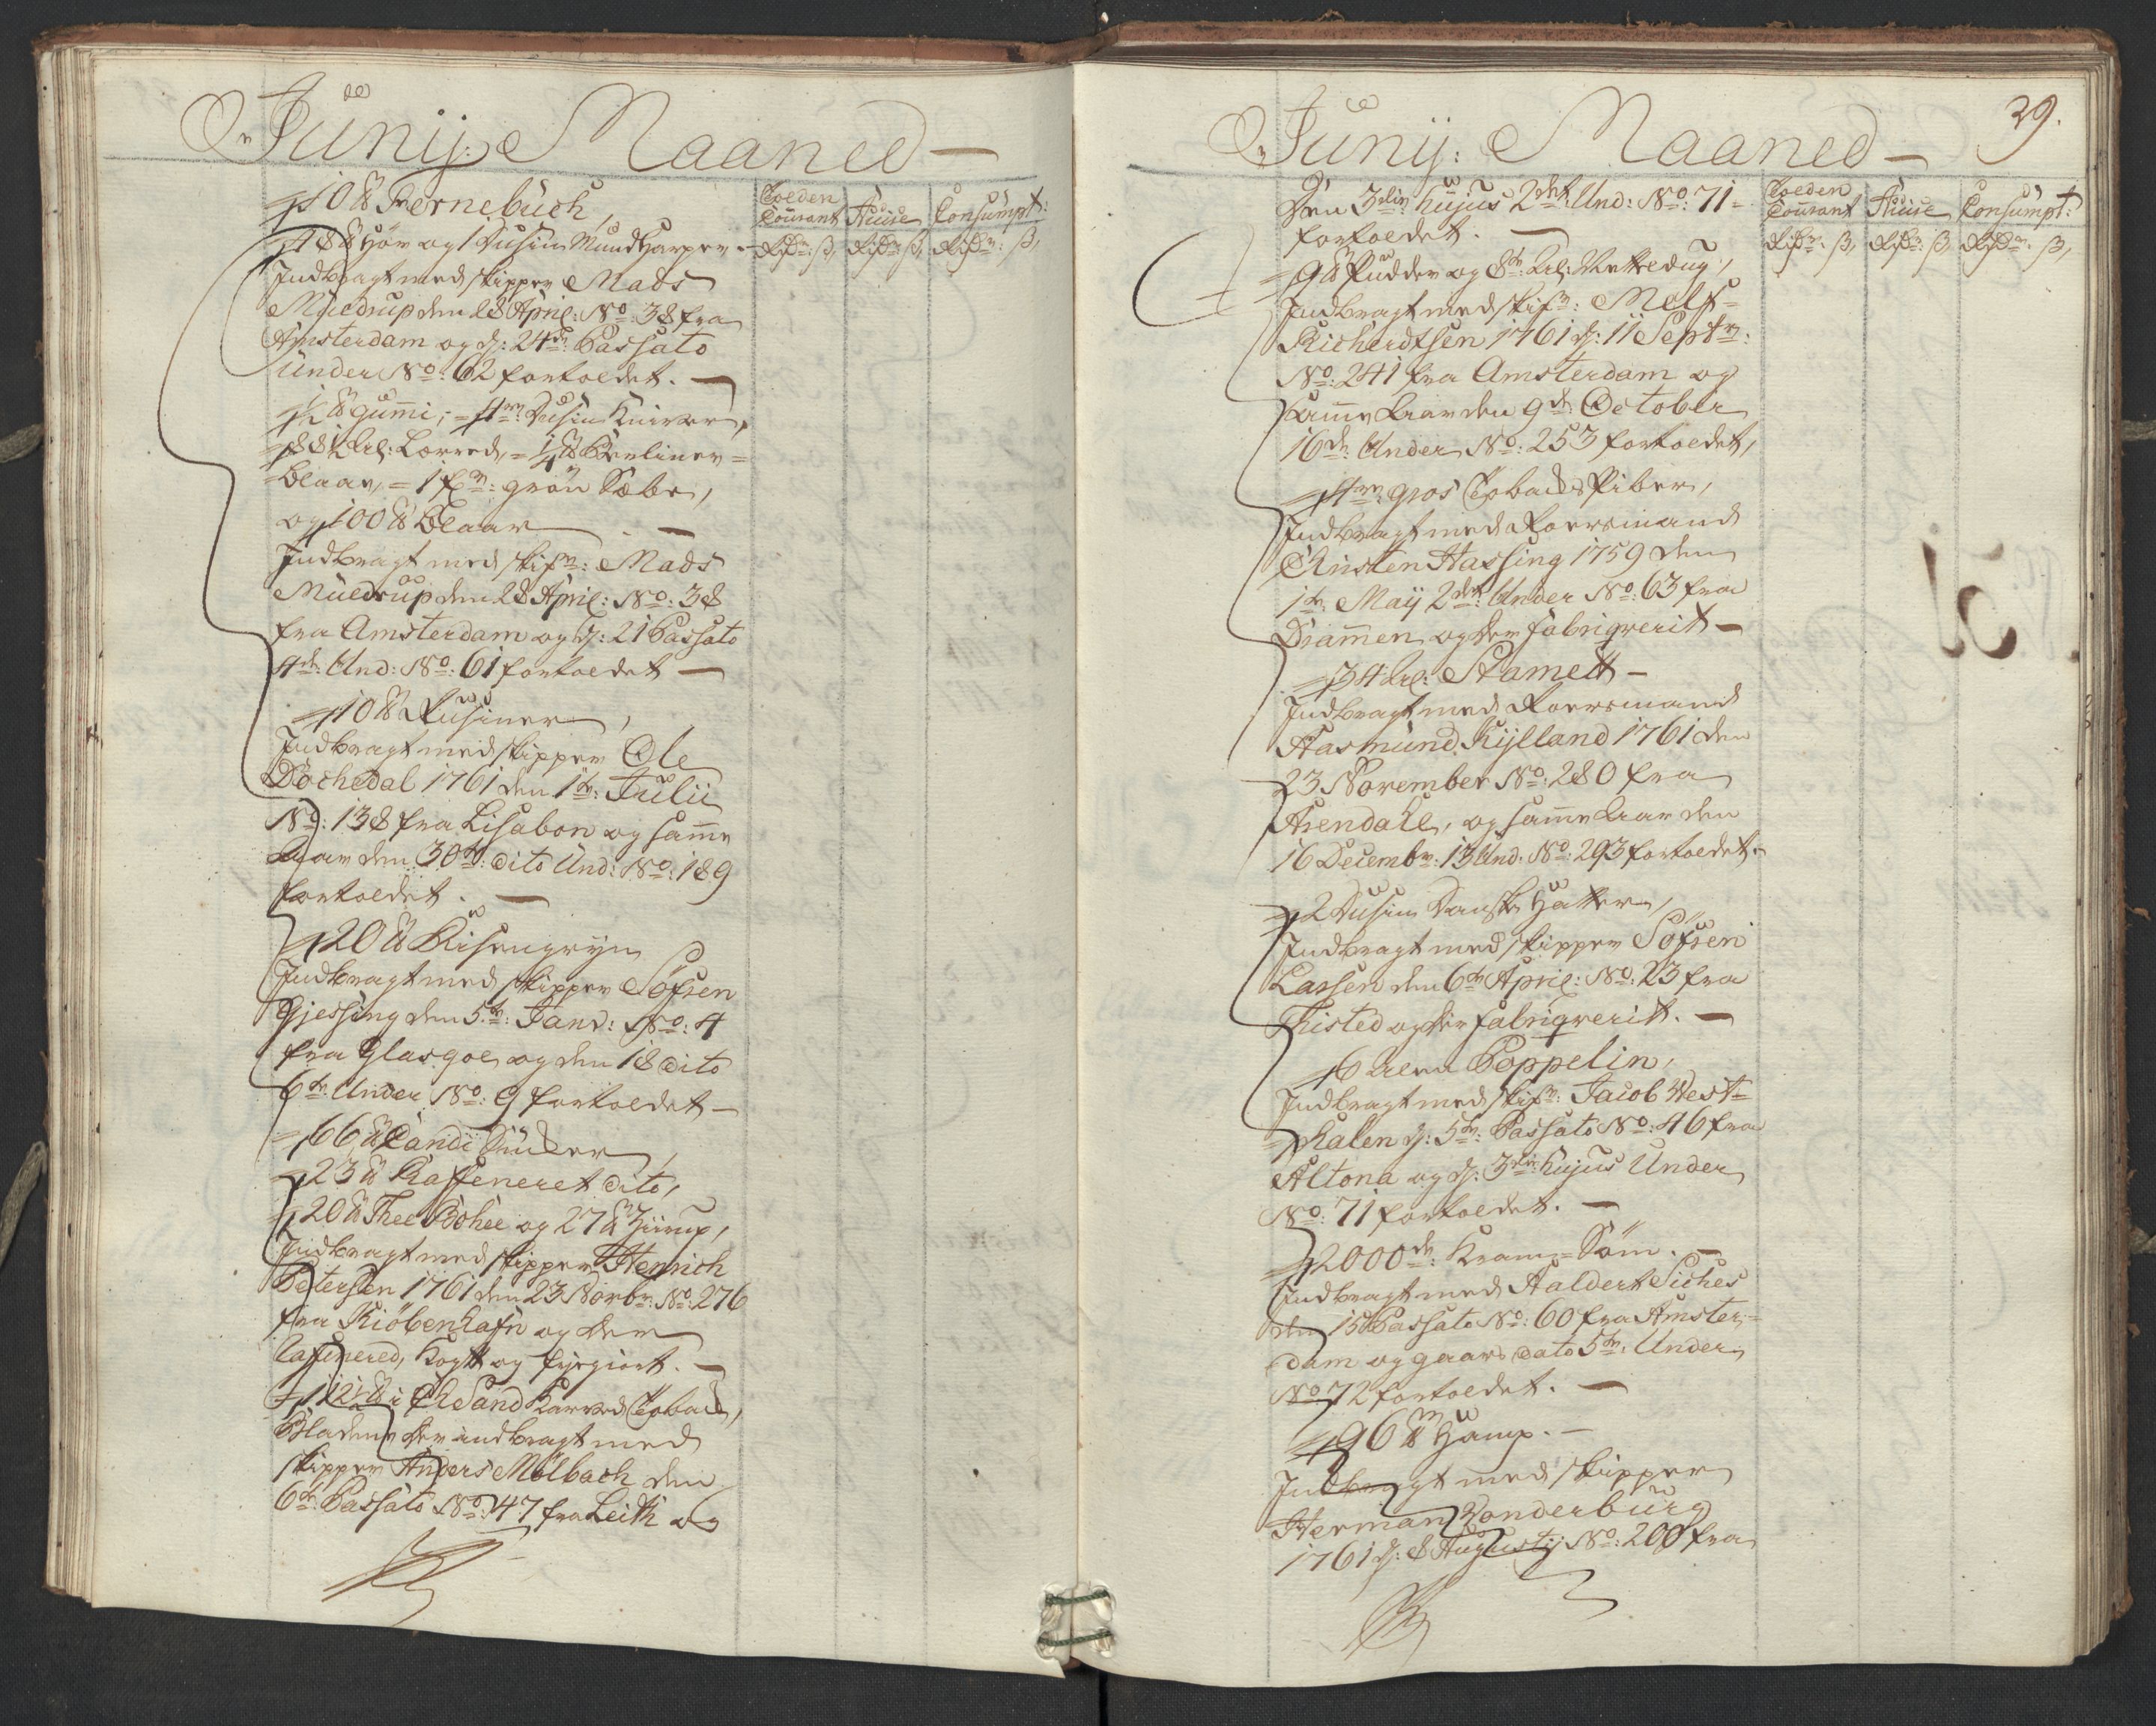 Junij: Maaned
Tolden Courant Acciise Consumpt:
Rdr: ß, Rdr: ß, Rdr: ß,
10 ℔ Fernebuch,
18 ℔ Hör og 1 Dusin Mundharper
Indbragt med skipper Mads
Müldrup den 28 April: No: 38 fra
Amsterdam og d: 24de Passato
under No: 62 fortoldet.
½ ℔ gummi, 4re Dusin Kniver,
88½ Al: Lærred, ¼ ℔ Berliner
blaar, 1 fr: grön Sæbe,
og 100 ℔ blaar
Indbragt med skipr: Mads
Müldrup den 28 April: No: 38
fra Amsterdam og d: 21 Passato
4de Und: No: 61 fortoldet
10 ℔ Rusiner,
Indbragt med skipper Ole
Dochedal 1761 den 1te Julii
No: 138 fra Lisabon og samme
Aar den 30te dito Und: No: 189
fortoldet.
20 ℔ Risengryn
Indbragt med skipper Söfren
Gjessing den 5te Janv: No: 4
fra Glasgoe og den 18 dito
6te Under No: 9 fortoldet
66 ℔ Candi Sucker,
23 ℔ Raffeneret dito,
20 ℔ Thee Bohee og 27 ℔ Siirup,
Indbragt med skipper Henrich
Petersen 1761 den 23 Novbr: No: 276
fra Kiöbenhafn og der
raffinered, kogt og
12½ ℔ i ChrSand Karved Tobachs
Blader der indbragt med
skipper Anders Mölbach den
6te Passato No: 47 fra Leith og
Junij: Maaned
29.
Tolden Courant Acciise Consumpt:
Rdr: ß, Rdr: ß, Rdr: ß,
Den 3die hujus 2det Und: No: 71
fortoldet.
9 ℔ Pudder og 8te Al:
Indbragt med skipr: Melf
Richerdtsen 1761 d: 11 Septr:
No: 241 fra Amsterdam og
samme Aar den 9de October
16de Under No: 253 fortoldet,
4re gros Tobachs Piber,
Indbragt med Roersmand
Christen Hassing 1759 den
1te Maij 2det Under No: 63 fra
Drammen og der fabriqverit
34 Al: Stamett
Indbragt med Roersmand
Aasmund Kijlland 1761 den
23 November No: 280 fra
Arendall, og samme Aar den
16 Decembr: 13 Und: No: 293 fortoldet.
2 Dusin Danske Hatter,
Indbragt med skipper Söfren
Lassen den 6te April: No: 23 fra
Thisted og der fabriqverit.
6 Alen Poppelin,
Indbragt med skipr: Jacob West=
phalen d: 5te Passato No: 46 fra
Altona og d: 3die hujus Under
No: 71 fortoldet.
2000de Kram=Söm.
Indbragt med Haldert Siches
den 15 Passato No: 60 fra Amster=
dam og gaars dato 5te Under
No 72 fortoldet.
96 ℔ Hamp.
Indbragt med skipper
Herman Vonderburg
1761 d: 8 Augustij No: 200 fra